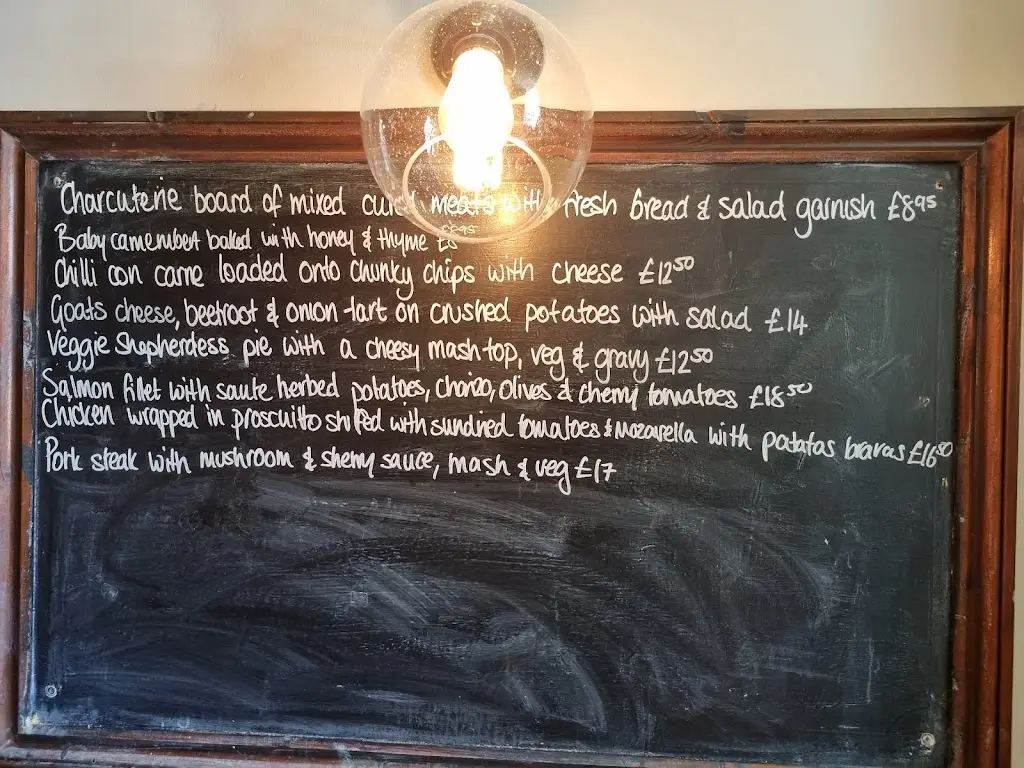 Charcuterie board of mixed cured meats with fresh bread & salad garnish £8.95
Baby camembert baked with honey & thyme £8
Chilli con carne loaded onto chunky chips with cheese £12.50
Goats cheese, beetroot & onion tart on crushed potatoes with salad £14
Veggie Shepherdess pie with a cheesy mash top, veg & gravy £12.50
Salmon fillet with saute herbed potatoes, chorizo, olives & cherry tomatoes £18.50
Chicken wrapped in proscuitto stuffed with sundried tomatoes & mozarella with patatas bravas £16.50
Pork steak with mushroom & sherry sauce, mash & veg £17